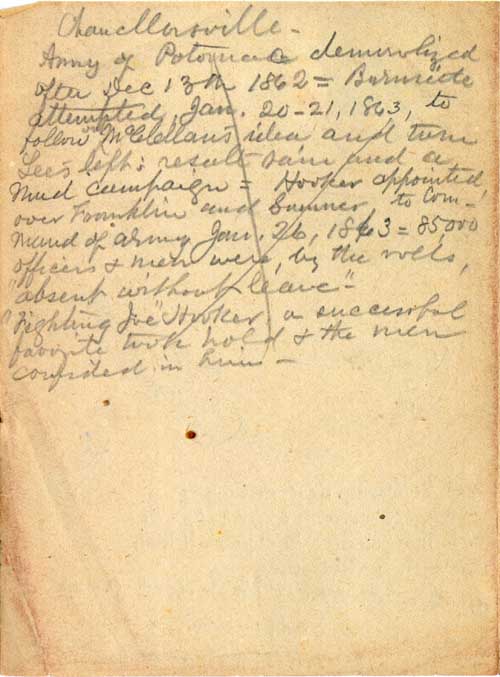 Chancellorsville-
Army of Potomac demoralized
after Dec 13th 1862 = Burnside
attempted, Jan. 20-21, 1863, to
follow McClellan's idea and turn
Lee's left: result rain and a
Mud campaign = Hooker appointed,
over Franklin and Sumner, to com-
mand of army Jan 26, 1863 = 85,000
officers & men were, by the rolls,
"absent without leave"-
"Fighting Joe" Hooker a successful
favorite took hold & the men
confided in him -